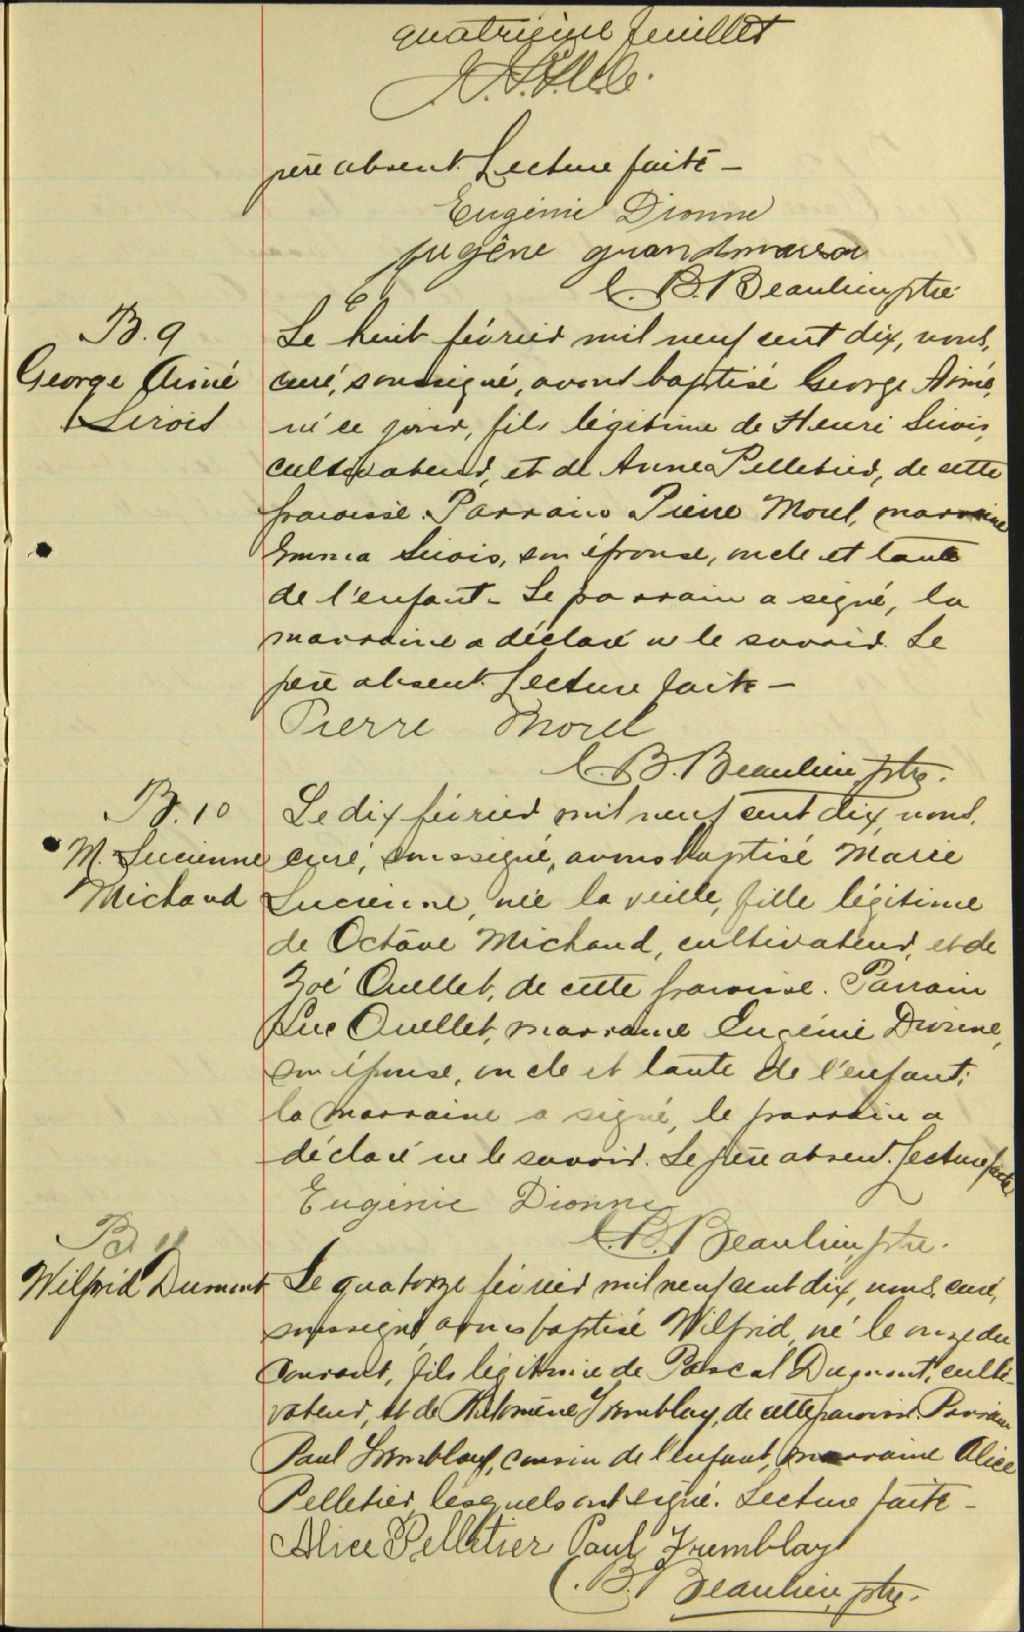 quatrième feuillet
père absent. Lecture faite —
Eugénie Dionne
Eugêne grandmaison
C. B. Beaulieu ptre.
B. 9
George Aimé
Sirois
Le huit février mil neuf cent dix, nous,
curé, soussigné, avons baptisé George Aimé,
né ce jour, fils légitime de Henri Sirois,
cultivateur, et de Anna Pelletier, de cette
paroisse. Parrain Pierre Morel, marraine
Emma Sirois, son épouse, oncle et tante
de l'enfant – Le parrain a signé, la
marraine a déclaré ne le savoir. Le
père absent. Lecture faite —
Pierre Morel
C. B. Beaulieu ptre.
B. 10
M. Lucienne
Michaud
Le dix février mil neuf cent dix, nous,
curé, soussigné, avons baptisé Marie
Lucienne, née la veille, fille légitime
de Octave Michaud, cultivateur, et de
Zoé Ouellet, de cette paroisse. Parrain
Luc Ouellet, marraine Eugénie Dionne,
son épouse, oncle et tante de l'enfant;
la marraine a signé, le parrain a
déclaré ne le savoir. Le père absent. Lecture faite
Eugénie Dionne
C. B. Beaulieu, ptre.
B. 11
Wilfrid Dumont
Le quatorze février mil neuf cent dix, nous, curé,
soussigné, avons baptisé Wilfrid, né le onze du
courant, fils légitime de Pascal Dumont, culti-
vateur, et de Philomène Tremblay, de cette paroisse. Parrain
Paul Tremblay, cousin de l'enfant, marraine Alice
Pelletier, lesquels ont signé. Lecture faite –
Alice Pelletier Paul Tremblay
C. B. Beaulieu, ptre.